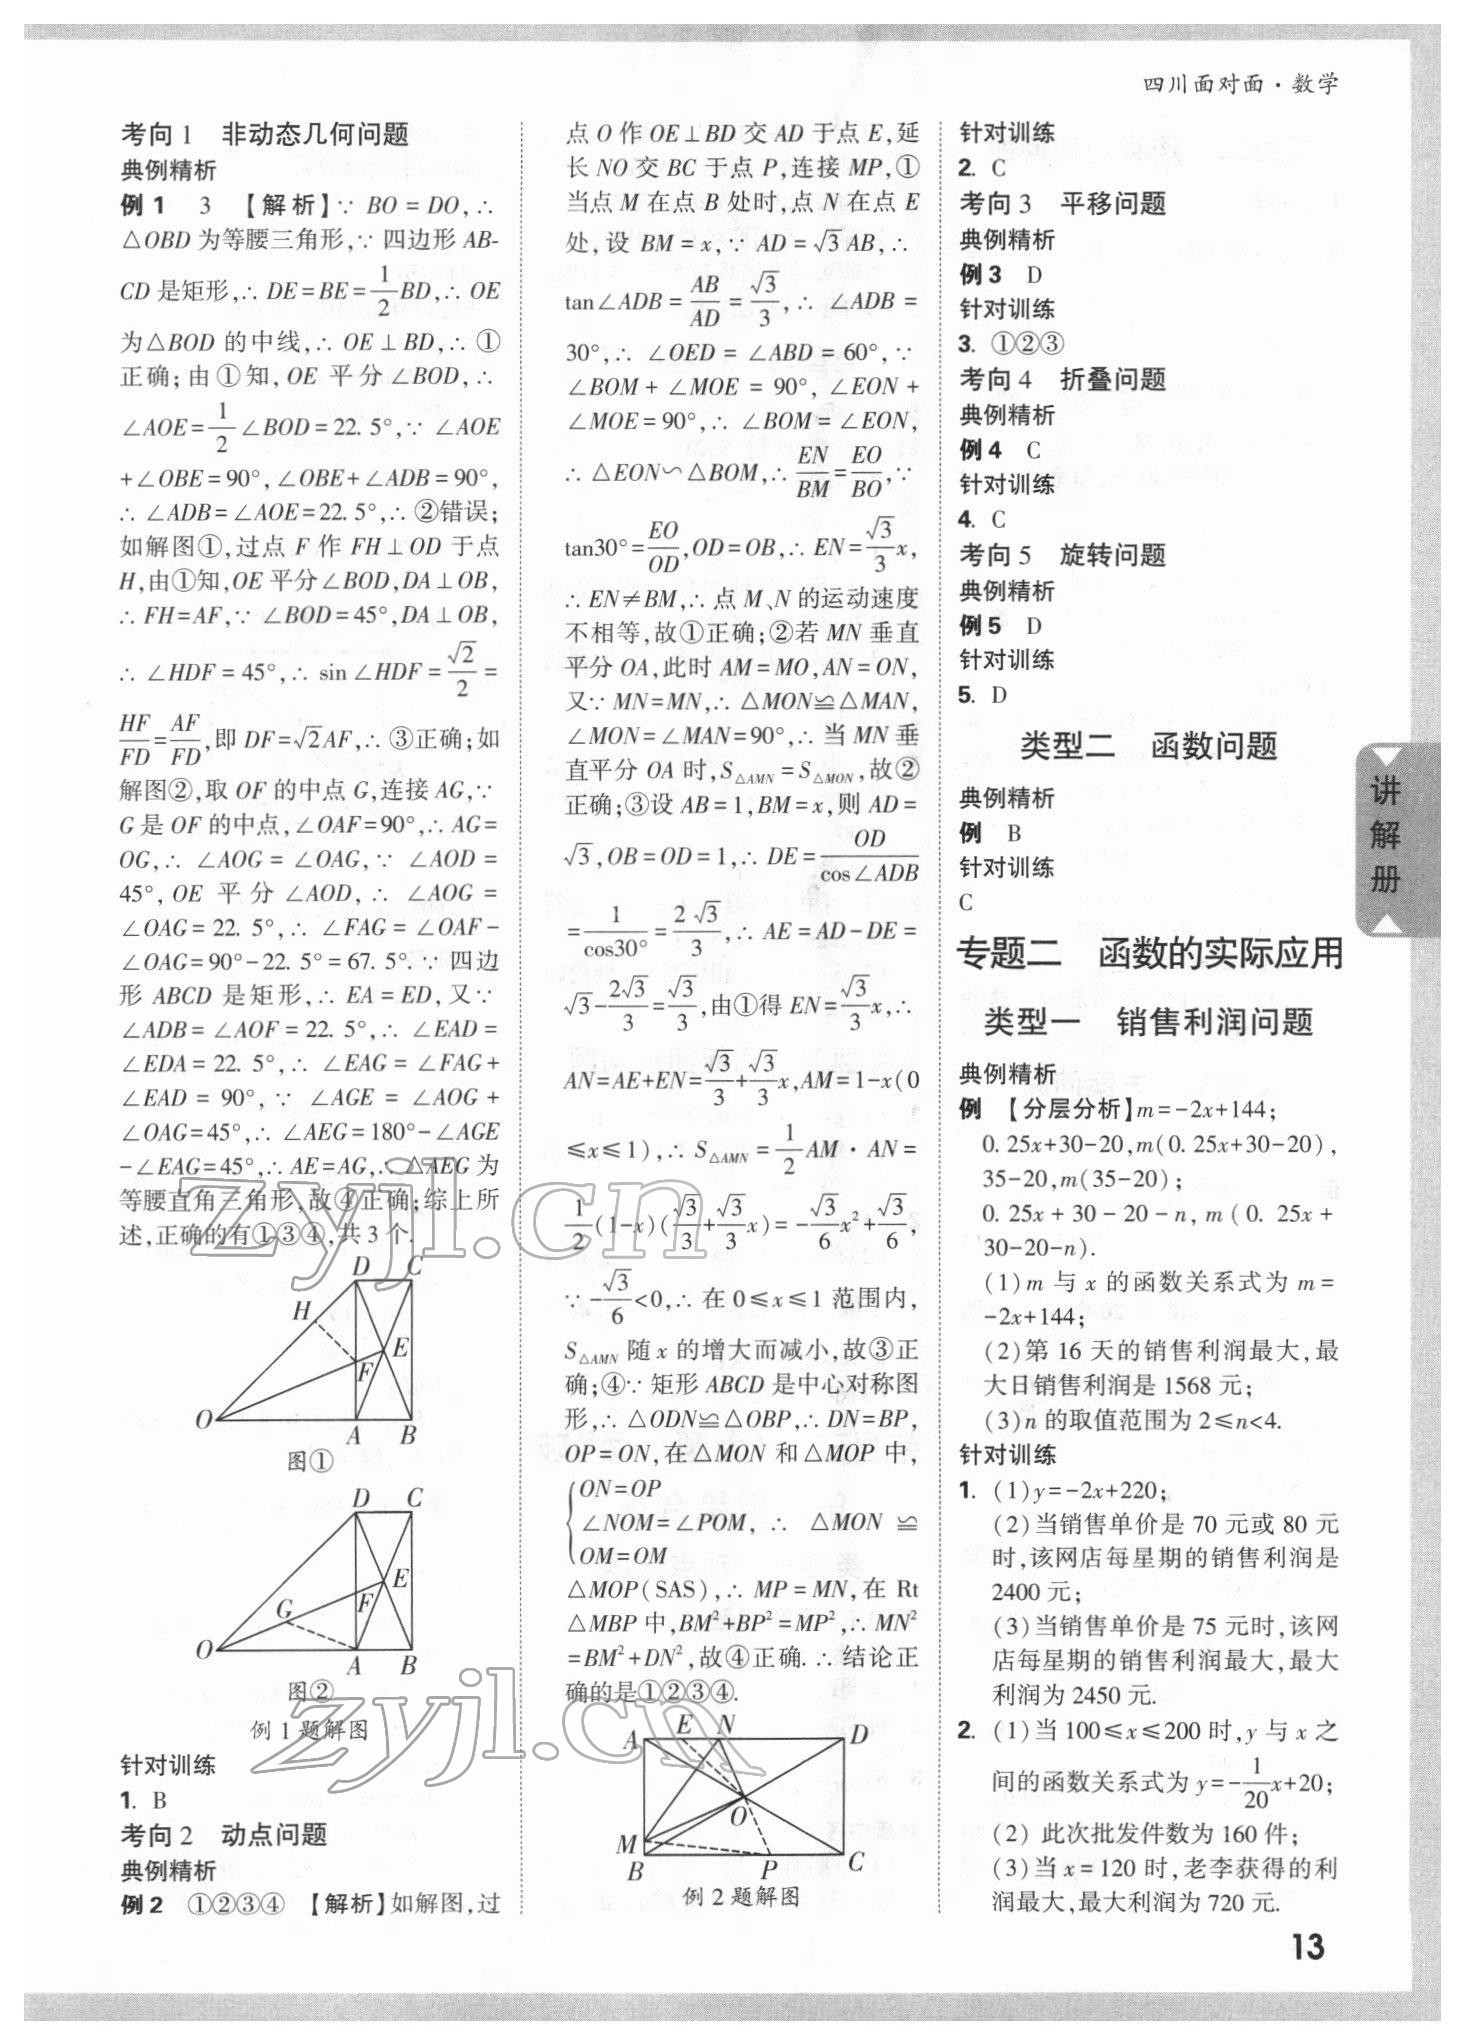 四川面对面·数学
考向1 非动态几何问题
典例精析
例1 3 【解析】∵BO=DO,∴
△OBD为等腰三角形,∵四边形AB-
CD是矩形,∴DE=BE=1/2BD,∴OE
为△BOD的中线,∴OE⊥BD,∴①
正确;由①知,OE平分∠BOD,∴
∠AOE=1/2∠BOD=22.5°,∵∠AOE
+∠OBE=90°,∠OBE+∠ADB=90°,
∴∠ADB=∠AOE=22.5°,∴②错误;
如解图①,过点F作FH⊥OD于点
H,由①知,OE平分∠BOD,DA⊥OB,
∴FH=AF,∵∠BOD=45°,DA⊥OB,
∴∠HDF=45°,∴sin∠HDF=√2/2=
HF/FD=AF/FD,即DF=√2AF,∴③正确;如
解图②,取OF的中点G,连接AG,∵
G是OF的中点,∠OAF=90°,∴AG=
OG,∴∠AOG=∠OAG,∵∠AOD=
45°,OE平分∠AOD,∴∠AOG=
∠OAG=22.5°,∴∠FAG=∠OAF-
∠OAG=90°-22.5°=67.5°.∵四边
形ABCD是矩形,∴EA=ED,又∵
∠ADB=∠AOF=22.5°,∴∠EAD=
∠EDA=22.5°,∴∠EAG=∠FAG+
∠EAD=90°,∵∠AGE=∠AOG+
∠OAG=45°,∴∠AEG=180°-∠AGE
-∠EAG=45°,∴AE=AG,∴△AEG为
等腰直角三角形,故④正确;综上所
述,正确的有①③④,共3个.
D C
H
E
F
O
A B
图①
D C
E
F
G
O
A B
图②
例1题解图
针对训练
1. B
考向2 动点问题
典例精析
例2 ①②③④ 【解析】如解图,过
点O作OE⊥BD交AD于点E,延
长NO交BC于点P,连接MP,①
当点M在点B处时,点N在点E
处,设BM=x,∵AD=√3AB,∴
tan∠ADB=AB/AD=√3/3,∴∠ADB=
30°,∴∠OED=∠ABD=60°,∵
∠BOM+∠MOE=90°,∠EON+
∠MOE=90°,∴∠BOM=∠EON,
∴△EON∽△BOM,∴EN/BM=EO/BO,∵
tan30°=EO/OD,OD=OB,∴EN=√3/3x,
∴EN≠BM,∴点M、N的运动速度
不相等,故①正确;②若MN垂直
平分OA,此时AM=MO,AN=ON,
又∵MN=MN,∴△MON≌△MAN,
∠MON=∠MAN=90°,∴当MN垂
直平分OA时,S△AMN=S△MON,故②
正确;③设AB=1,BM=x,则AD=
√3,OB=OD=1,∴DE=OD/cos∠ADB
=1/cos30°=2√3/3,∴AE=AD-DE=
√3-2√3/3=√3/3,由①得EN=√3/3x,∴
AN=AE+EN=√3/3+√3/3x,AM=1-x(0
≤x≤1),∴S△AMN=1/2AM·AN=
1/2(1-x)(√3/3+√3/3x)=-√3/6x²+√3/6,
∵-√3/6<0,∴在0≤x≤1范围内,
S△AMN随x的增大而减小,故③正
确;④∵矩形ABCD是中心对称图
形,∴△ODN≌△OBP,∴DN=BP,
OP=ON,在△MON和△MOP中,
{ON=OP
∠NOM=∠POM,∴△MON≌
OM=OM
△MOP(SAS),∴MP=MN,在Rt
△MBP中,BM²+BP²=MP²,∴MN²
=BM²+DN²,故④正确.∴结论正
确的是①②③④.
A E N D
O
M
B P C
例2题解图
针对训练
2. C
考向3 平移问题
典例精析
例3 D
针对训练
3. ①②③
考向4 折叠问题
典例精析
例4 C
针对训练
4. C
考向5 旋转问题
典例精析
例5 D
针对训练
5. D
类型二 函数问题
典例精析
例 B
针对训练
C
专题二 函数的实际应用
类型一 销售利润问题
典例精析
例 【分层分析】m=-2x+144;
0.25x+30-20,m(0.25x+30-20),
35-20,m(35-20);
0.25x+30-20-n,m(0.25x+
30-20-n).
(1)m与x的函数关系式为m=
-2x+144;
(2)第16天的销售利润最大,最
大日销售利润是1568元;
(3)n的取值范围为2≤n<4.
针对训练
1. (1)y=-2x+220;
(2)当销售单价是70元或80元
时,该网店每星期的销售利润是
2400元;
(3)当销售单价是75元时,该网
店每星期的销售利润最大,最大
利润为2450元.
2. (1)当100≤x≤200时,y与x之
间的函数关系式为y=-1/20x+20;
(2)此次批发件数为160件;
(3)当x=120时,老李获得的利
润最大,最大利润为720元.
讲解册
13
zyjl.cn
zyjl.cn